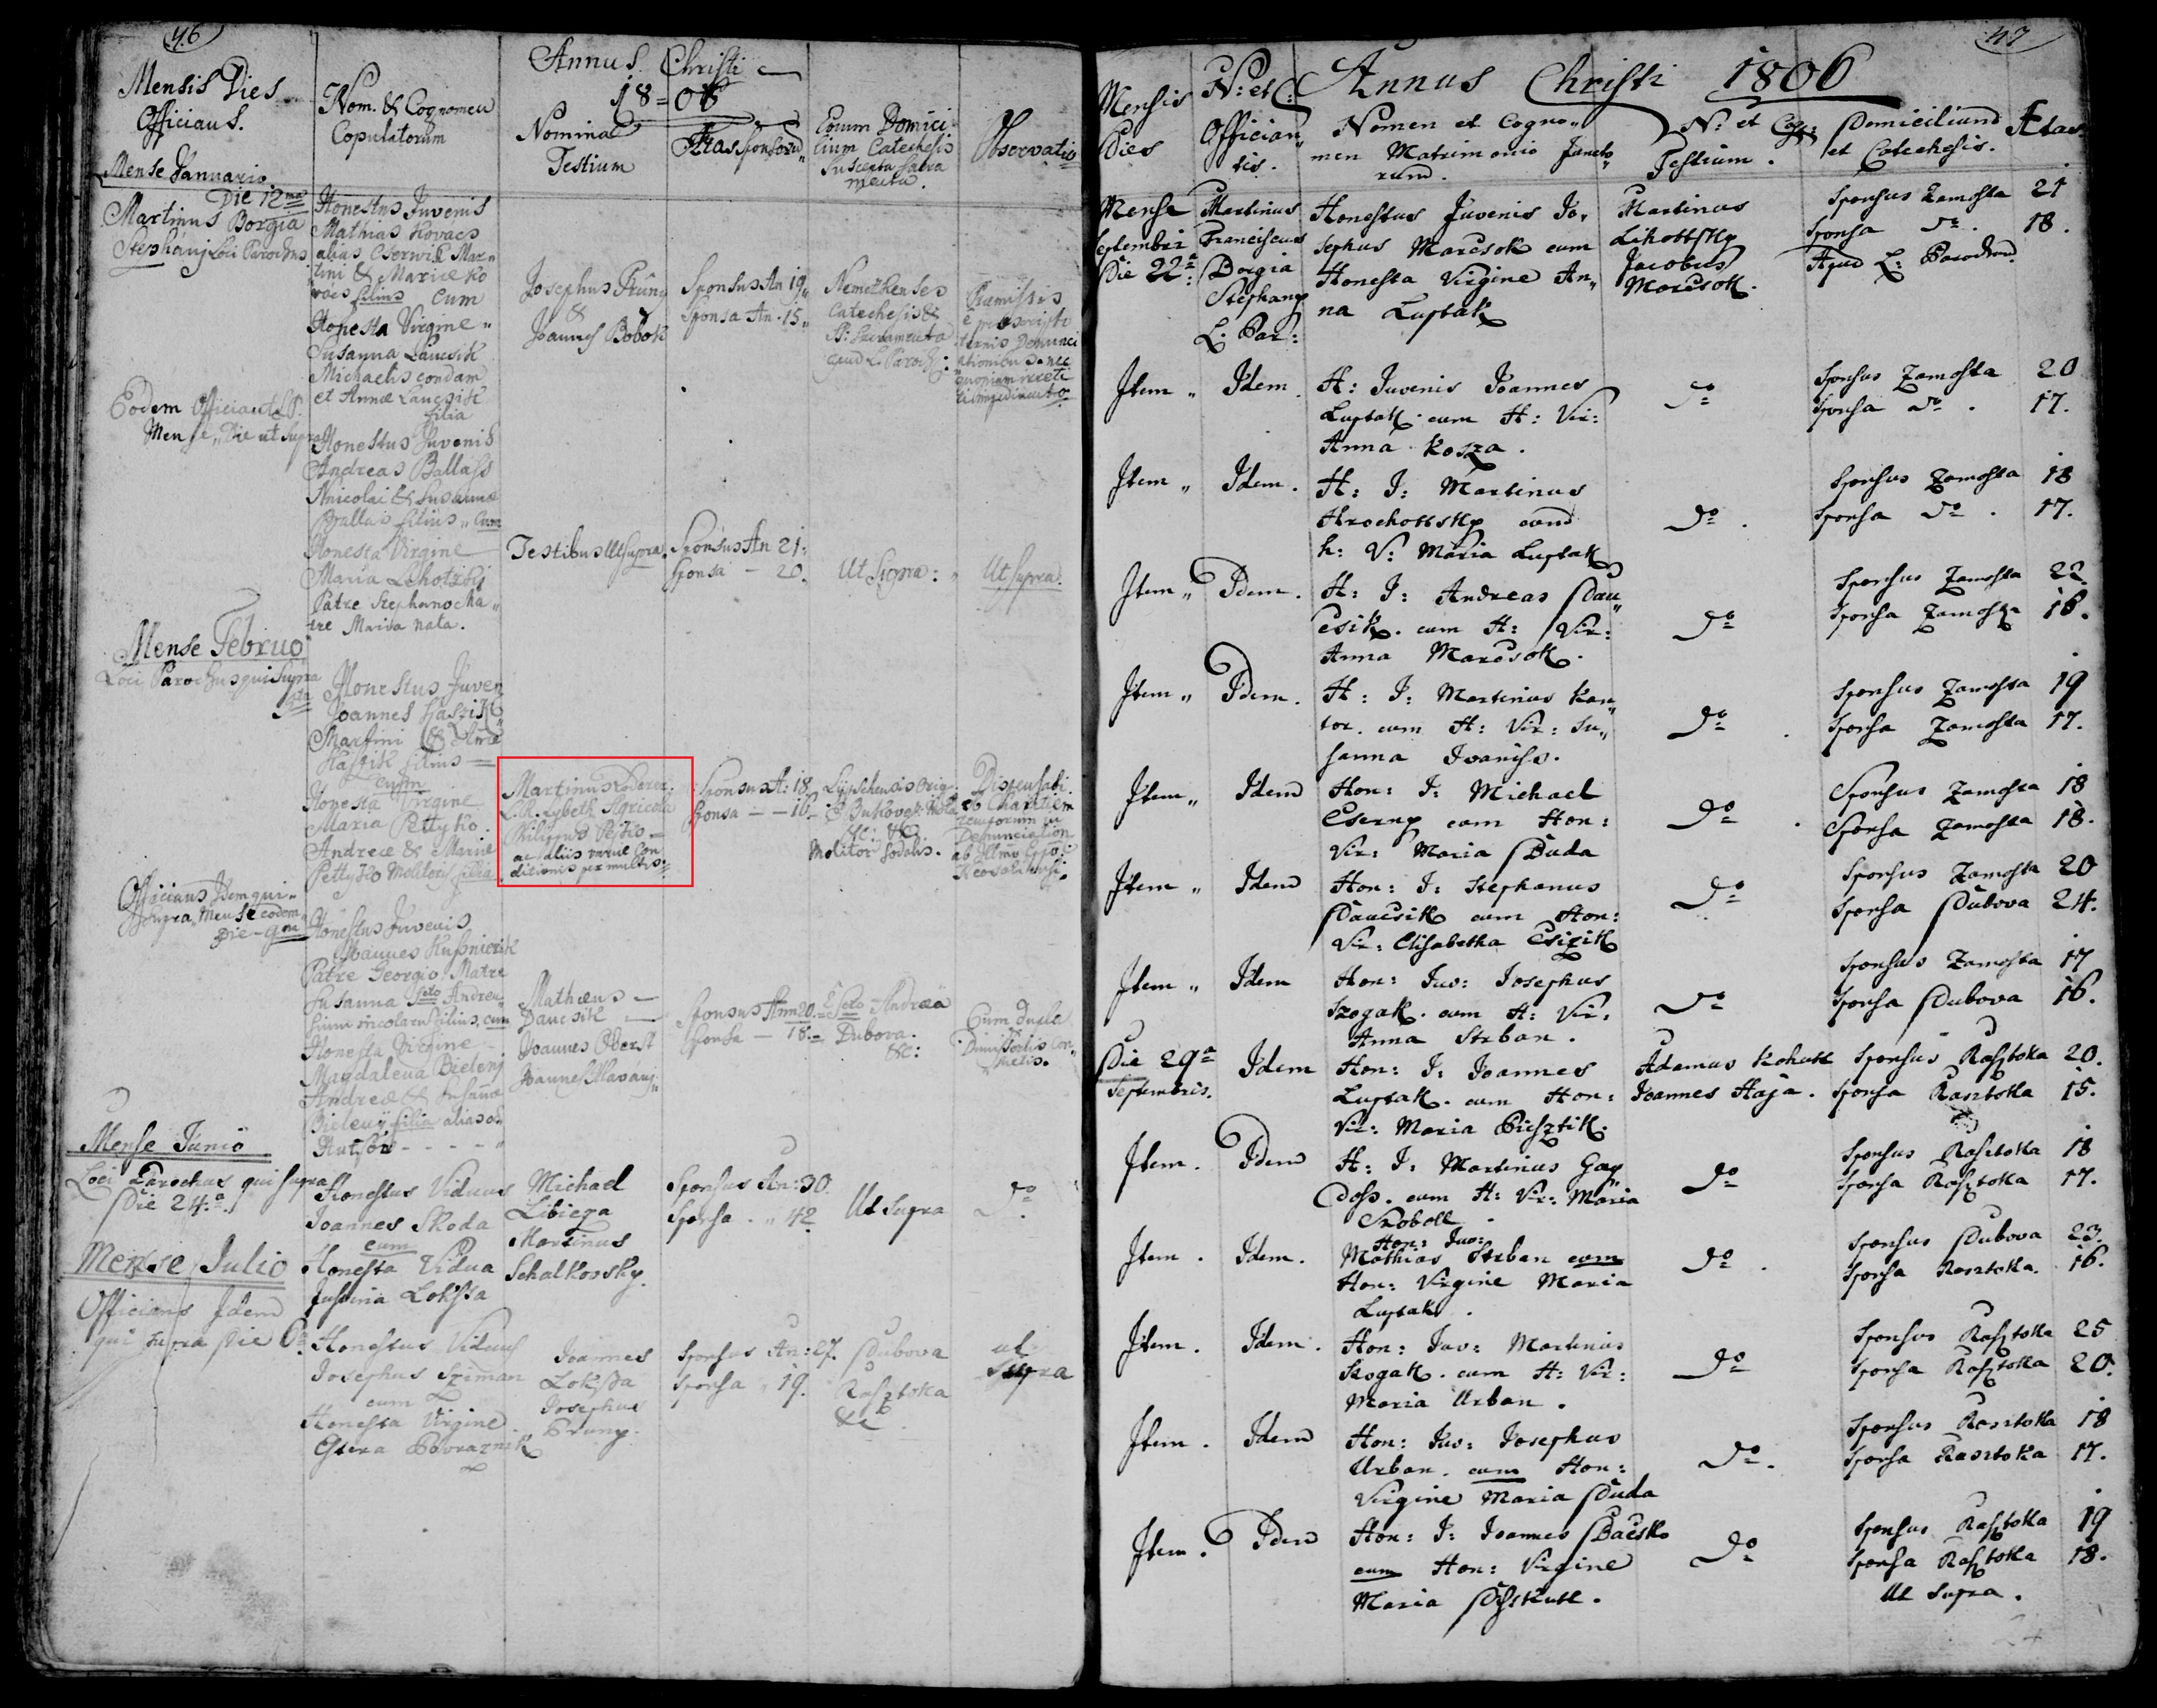 46
Annus Christi
18=06
Mensis Dies
Officians.
Nom. & Cognomen
Copulatorum
Nomina
Testium
Ætas Sponsoru
Eorum Domici
lium Catechesis
Suscepta Sacra
menta.
Observatio
Mense Januario
Die 12ma
Martinus Borgia
Stephanj Loci Parochus
Honestus Juvenis
Mathias Kovacs
alias Cserwik Mar
tini & Mariæ Ko
vacs filius cum
Honesta Virgine
Susanna Lancsik
Michaelis condam
et Annæ Lancsik
filia
Josephus Prung
&
Joannes Bobok
Sponsus An 19
Sponsa An. 15
Catechesis &
SS. Sacramenta
apud L. Paroch:
Præmissis
ternis Denunci
ationibus
Eodem Officians
Mense, Die ut Supra
Honestus Juvenis
Andreas Ballass
Nicolai & Susannæ
Ballas filius, Cum
Honesta Virgine
Maria Lehotsky
Patre Stephano Ma
tre Maria nata.
Testibus Ut supra.
Sponsus An 21.
Sponsa — 20.
Ut Supra:
Ut supra.
Mense Februo
Loci Parochus qui Supra
Honestus Juven
Joannes Haszik
Martini &
Haszik filius
cum
Honesta Virgine
Maria Pettyko.
Andreæ & Mariæ
Pettyko Molitor filia
Martinus
C. R. Lybeth Agricola
Philippus Petko
ac aliis variæ Con
ditionis per multis:
Sponsus A: 18.
Sponsa — 16.
Molitor Sodalis.
Dispensati
Denunciation
ab Illmo
Neosoliensi.
Officians Idem qui
Supra, Mense eodem
Die 9na
Honestus Juvenis
Joannes Kussnierik
Patre Georgio Matre
Susanna Sto Andrea
filius, cum
Honesta Virgine
Magdalena Bieleny
Andreæ & Susannæ
Bieleny filia alias
Mathæus
Dancsik
Joannes Oberst
Sponsus Ann 20.
Sponsa — 18.
Sto Andræa
Dubova.
&c:
Cum dupla
Mense Junio
Loci Parochus qui supra
Die 24.a
Honestus Viduus
Joannes Skoda
cum
Honesta Vidua
Justina Loksa
Michael
Libiega
Martinus
Schalkovsky.
Sponsus An: 30.
Sponsa . " 42
Ut Supra
Do
Mense Julio
Officians Idem
qui supra Die 6a
Honestus Viduus
Josephus Sziman
cum
Honesta Virgine
Estera Povraznik
Joannes
Loksa
Josephus
Prung.
Sponsus An: 27.
Sponsa " 19.
Dubova
Rasztoka
&c
ut
supra
47
Annus Christi 1806
Mensis
Dies
N: et C:
Offician
tis.
Nomen et Cogno
men Matrimonio Juncto
rum.
N: et Cog:
Testium.
Domicilium
et Catechesis.
Ætas
Mense
Septembri
Die 22a
Martinus
Franciscus
Borgia
Stephany
L: Par:
Honestus Juvenis Jo
sephus Marcsok cum
Honesta Virgine An
na Luptak
Martinus
Lihottsky
Jacobus
Marcsok.
Sponsus Zamosta 21
Sponsa Do. 18.
Apud L: Parochum
Item " Idem.
H: Juvenis Joannes
Luptak. cum H: Vir:
Anna Kosza.
Do
Sponsus Zamosta 20
Sponsa Do. 17.
Item " Idem.
H: J: Martinus
Hrochottsky cum
h: V: Maria Luptak
Do.
Sponsus Zamosta 18
Sponsa Do. 17.
Item " Idem.
H: J: Andreas Dan
csik. cum H: Vir:
Anna Marcsok.
Do
Sponsus Zamosta 22.
Sponsa Zamosta 16.
Item " Idem.
H: J: Martinus Kan
tor. cum H: Vir: Su
sanna Ivaniss.
Do
Sponsus Zamosta 19
Sponsa Zamosta 17.
Item " Idem
Hon: J: Michael
Cserny cum Hon:
Vir: Maria Duda
Do
Sponsus Zamosta 18
Sponsa Zamosta 18.
Item " Idem
Hon: J: Stephanus
Dancsik cum Hon:
Vir: Elisabetha Csizik
Do
Sponsus Zamosta 20
Sponsa Dubova 24.
Item " Idem
Hon: Juv: Josephus
Szogak. cum H: Vir:
Anna Strban.
Do
Sponsus Zamosta 17
Sponsa Dubova 16.
Die 29a
Septembris.
Idem
Hon: J: Joannes
Luptak. cum Hon:
Vir: Maria Piesztik.
Adamus Kohutt
Joannes Haja.
Sponsus Rasztoka 20.
Sponsa Rasztoka 15.
Item. Idem
H: J: Martinus Gay
doss. cum H: Vir: Maria
Skoboll.
Do
Sponsus Rasztoka 18
Sponsa Rasztoka 17.
Item. Idem.
Hon: Juv:
Mathias Strban cum
Hon: Virgine Maria
Luptak.
Do.
Sponsus Dubova 23.
Sponsa Rasztoka. 16.
Item. Idem.
Hon: Juv: Martinus
Szogak. cum H: Vir:
Maria Urban.
Do
Sponsus Rasztoka 25
Sponsa Rasztoka 20.
Item. Idem
Hon: Juv: Josephus
Urban. cum Hon:
Virgine Maria Duda
Do.
Sponsus Rasztoka 18
Sponsa Rasztoka 17.
Item. Idem
Hon: J: Joannes Bacsko
cum Hon: Virgine
Maria
Do
Sponsus Rasztoka 19
Sponsa Rasztoka 18.
Ut Supra.